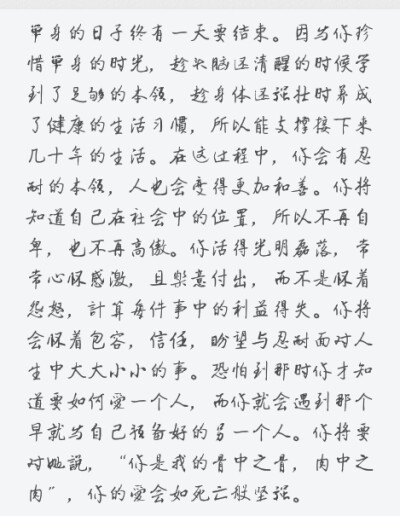 单身的日子终有一天要结束。因为你珍
惜单身的时光，趁头脑还清醒的时候学
到了足够的本领，趁身体还强壮时养成
了健康的生活习惯，所以能支撑接下来
几十年的生活。在这过程中，你会有忍
耐的本领，人也会变得更加和善。你将
知道自己在社会中的位置，所以不再自
卑，也不再高傲。你活得光明磊落，常
常心怀感激，且乐意付出，而不是怀着
怨怒，計算每件事中的利益得失。你将
会怀着包容，信任，盼望与忍耐面对人
生中大大小小的事。恐怕到那时你才知
道要如何愛一个人，而你就会遇到那个
早就为自己预备好的另一个人。你将要
对她説，“你是我的骨中之骨，肉中之
肉”，你的愛会如死亡般坚强。